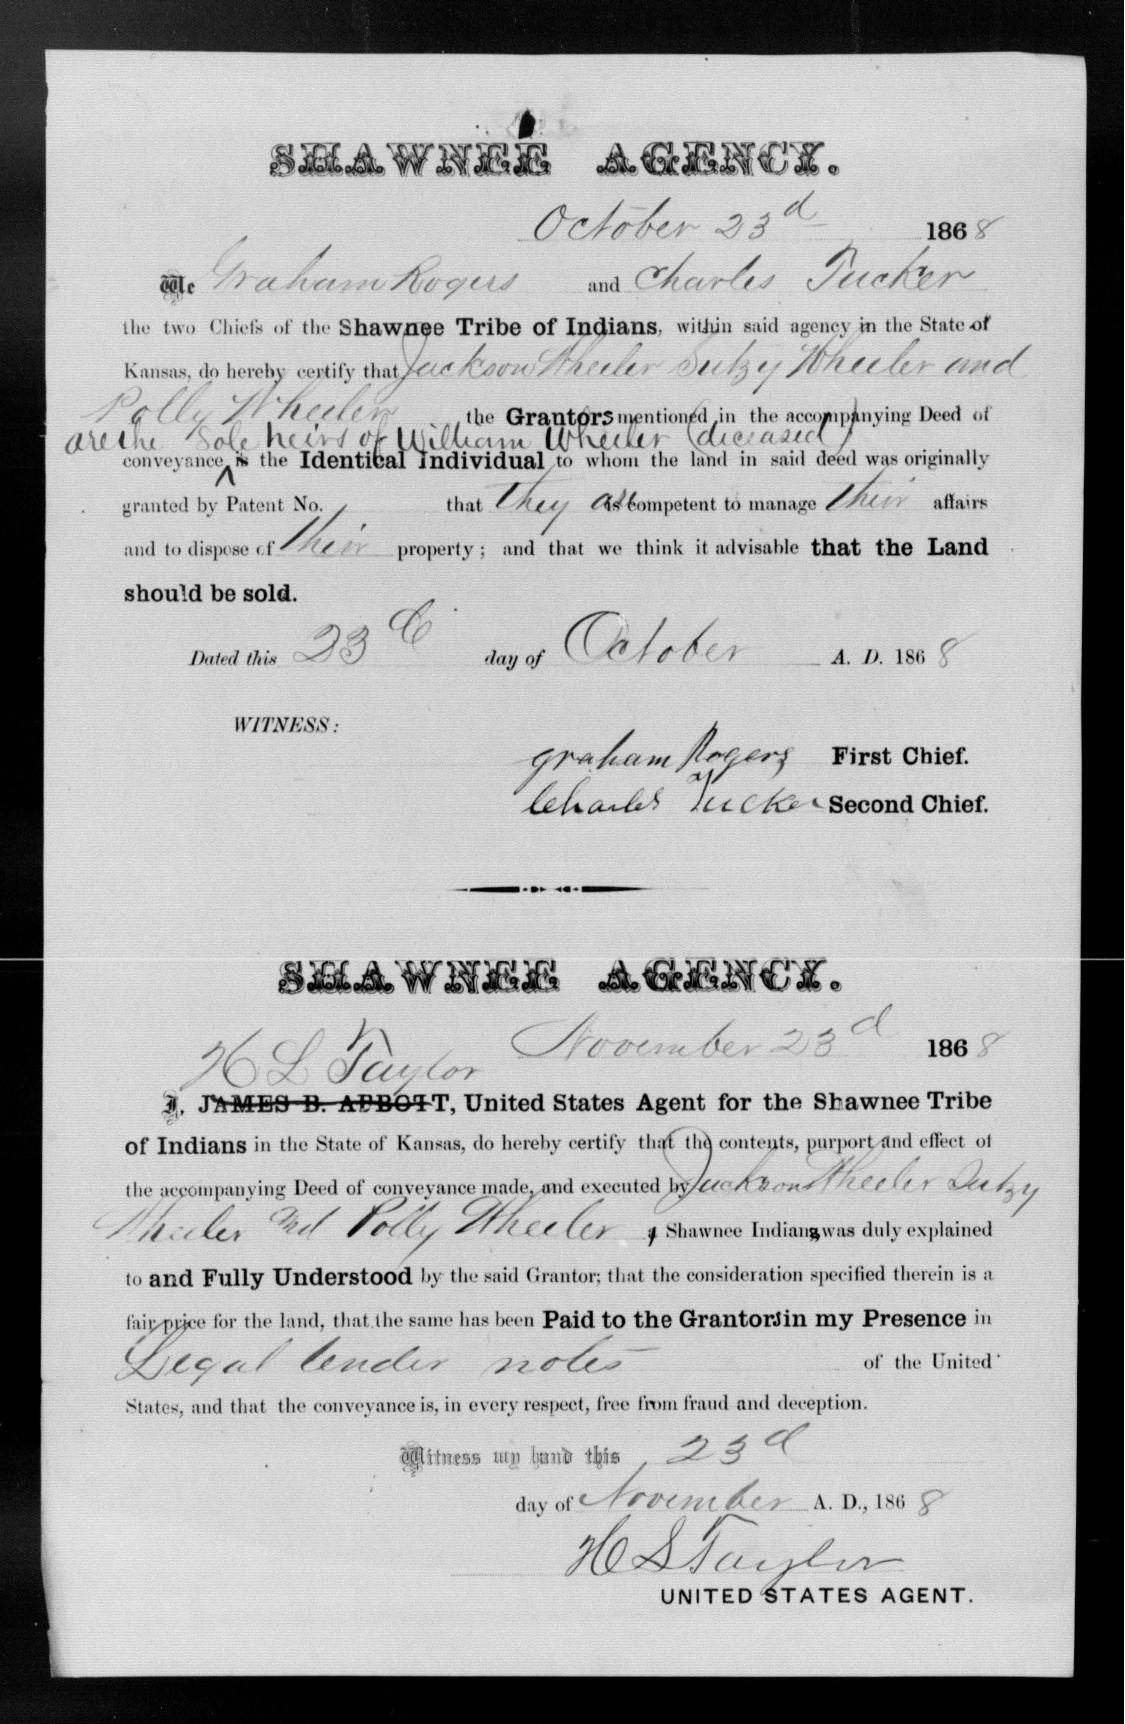 SHAWNEE AGENCY.
October 23d 1868
We Graham Rogers and Charles Tucker
the two Chiefs of the Shawnee Tribe of Indians, within said agency in the State of
Kansas, do hereby certify that Jackson Wheeler Sutzy Wheeler and
Polly Wheeler the Grantors mentioned in the accompanying Deed of
are the Sole heirs of William Wheeler (diceased)
conveyance is the Identical Individual to whom the land in said deed was originally
granted by Patent No. that they are is competent to manage their affairs
and to dispose of their property; and that we think it advisable that the Land
should be sold.
Dated this 23d day of October A. D. 1868
WITNESS:
graham Rogers First Chief.
Charles Tucker Second Chief.
SHAWNEE AGENCY.
November 23d 1868
H L Taylor
I, JAMES B. ABBOTT, United States Agent for the Shawnee Tribe
of Indians in the State of Kansas, do hereby certify that the contents, purport and effect of
the accompanying Deed of conveyance made, and executed by Jackson Wheeler Sutzy
Wheeler and Polly Wheeler a Shawnee Indians was duly explained
to and Fully Understood by the said Grantor; that the consideration specified therein is a
fair price for the land, that the same has been Paid to the Grantors in my Presence in
Legal tender notes of the United
States, and that the conveyance is, in every respect, free from fraud and deception.
Witness my hand this 23d
day of November A. D., 1868
H L Taylor
UNITED STATES AGENT.